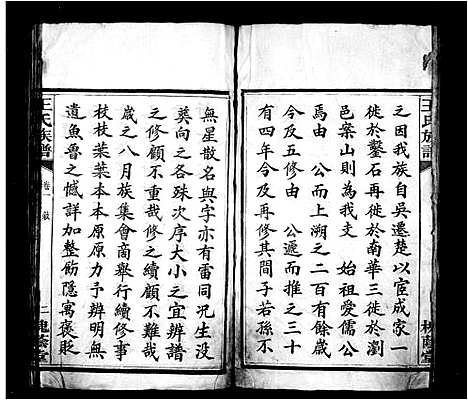 王氏族譜
之因我族自吳遷楚以宦成家一
徙於鑿石再徙於南華三徙於瀏
邑案山則為我支　始祖愛儒公
焉由　公而上溯之二百有餘歲
今及五修由　公遞而推之三十
有四年今及再修其間子若孫不
無星散名與字亦有雷同况生没
葬向之各殊次序大小之宜辨譜
之修顧不重哉修之續顧不難哉
歲之八月族集會商舉行續修事
枝枝葉葉本本原原力予辨明無
遺魚魯之憾詳加整飭隱寓褒貶
王氏族譜
卷一
敍
二
槐蔭堂